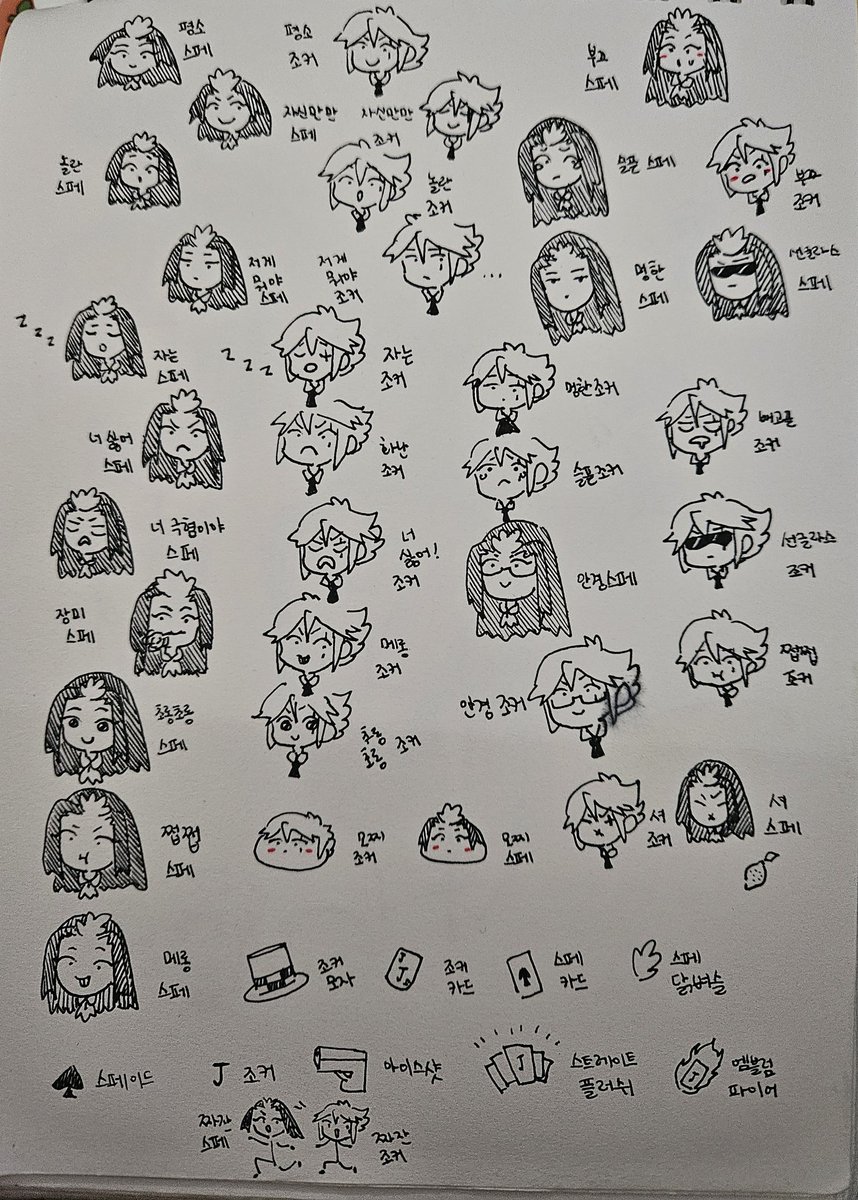 평소
스페
평소
조커
부끄
스페
자신만만
스페
자신만만
조커
놀란
스페
놀란
조커
슬픈 스페
부끄
조커
저게
뭐야
스페
저게
뭐야
조커
...
멍한
스페
선글라스
스페
z z z
자는
스페
z z z
자는
조커
멍한 조커
배고픈
조커
너 싫어
스페
화난
조커
슬픈 조커
너 극혐이야
스페
너
싫어!
조커
안경 스페
선글라스
조커
장미
스페
메롱
조커
쩝쩝
조커
초롱초롱
스페
초롱
초롱 조커
안경 조커
쩝쩝
스페
모찌
조커
모찌
스페
셔
조커
셔
스페
메롱
스페
조커
모자
J
J
J
조커
카드
스페
카드
스페
닭벼슬
스페이드
J 조커
아이스샷
J
스트레이트
플러쉬
J
엠블럼
파이어
짜잔
스페
짜잔
조커